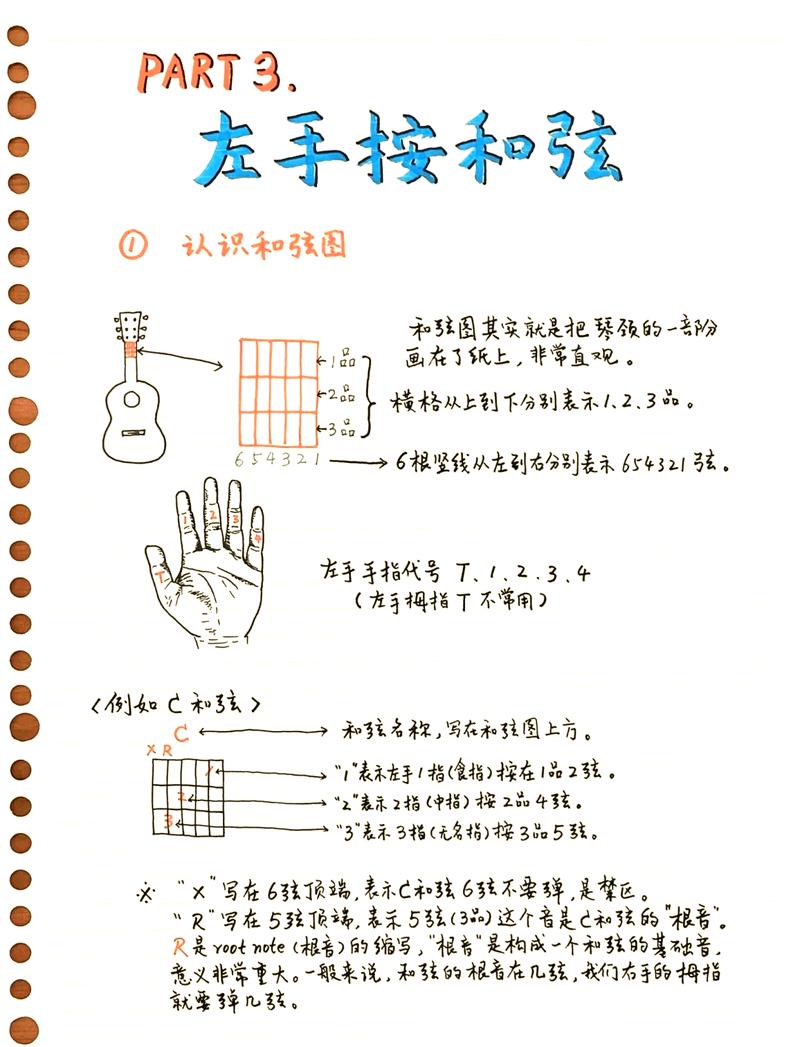 PART 3.
左手按和弦
① 认识和弦图
和弦图其实就是把琴颈的一部份
画在了纸上，非常直观。
1品
2品
3品
横格从上到下分别表示1、2、3品。
6 5 4 3 2 1
6根竖线从左到右分别表示654321弦。
T 1 2 3 4
左手手指代号 T、1、2、3、4
（左手拇指T不常用）
〈例如C和弦〉
C
和弦名称，写在和弦图上方。
X R
1
"1"表示左手1指(食指)按在1品2弦。
2
"2"表示2指(中指)按2品4弦。
3
"3"表示3指(无名指)按3品5弦。
※ "X"写在6弦顶端，表示C和弦6弦不要弹，是禁区。
"R"写在5弦顶端，表示5弦(3品)这个音是C和弦的"根音"。
R是root note(根音)的缩写，"根音"是构成一个和弦的基础音，
意义非常重大。一般来说，和弦的根音在几弦，我们右手的拇指
就要弹几弦。